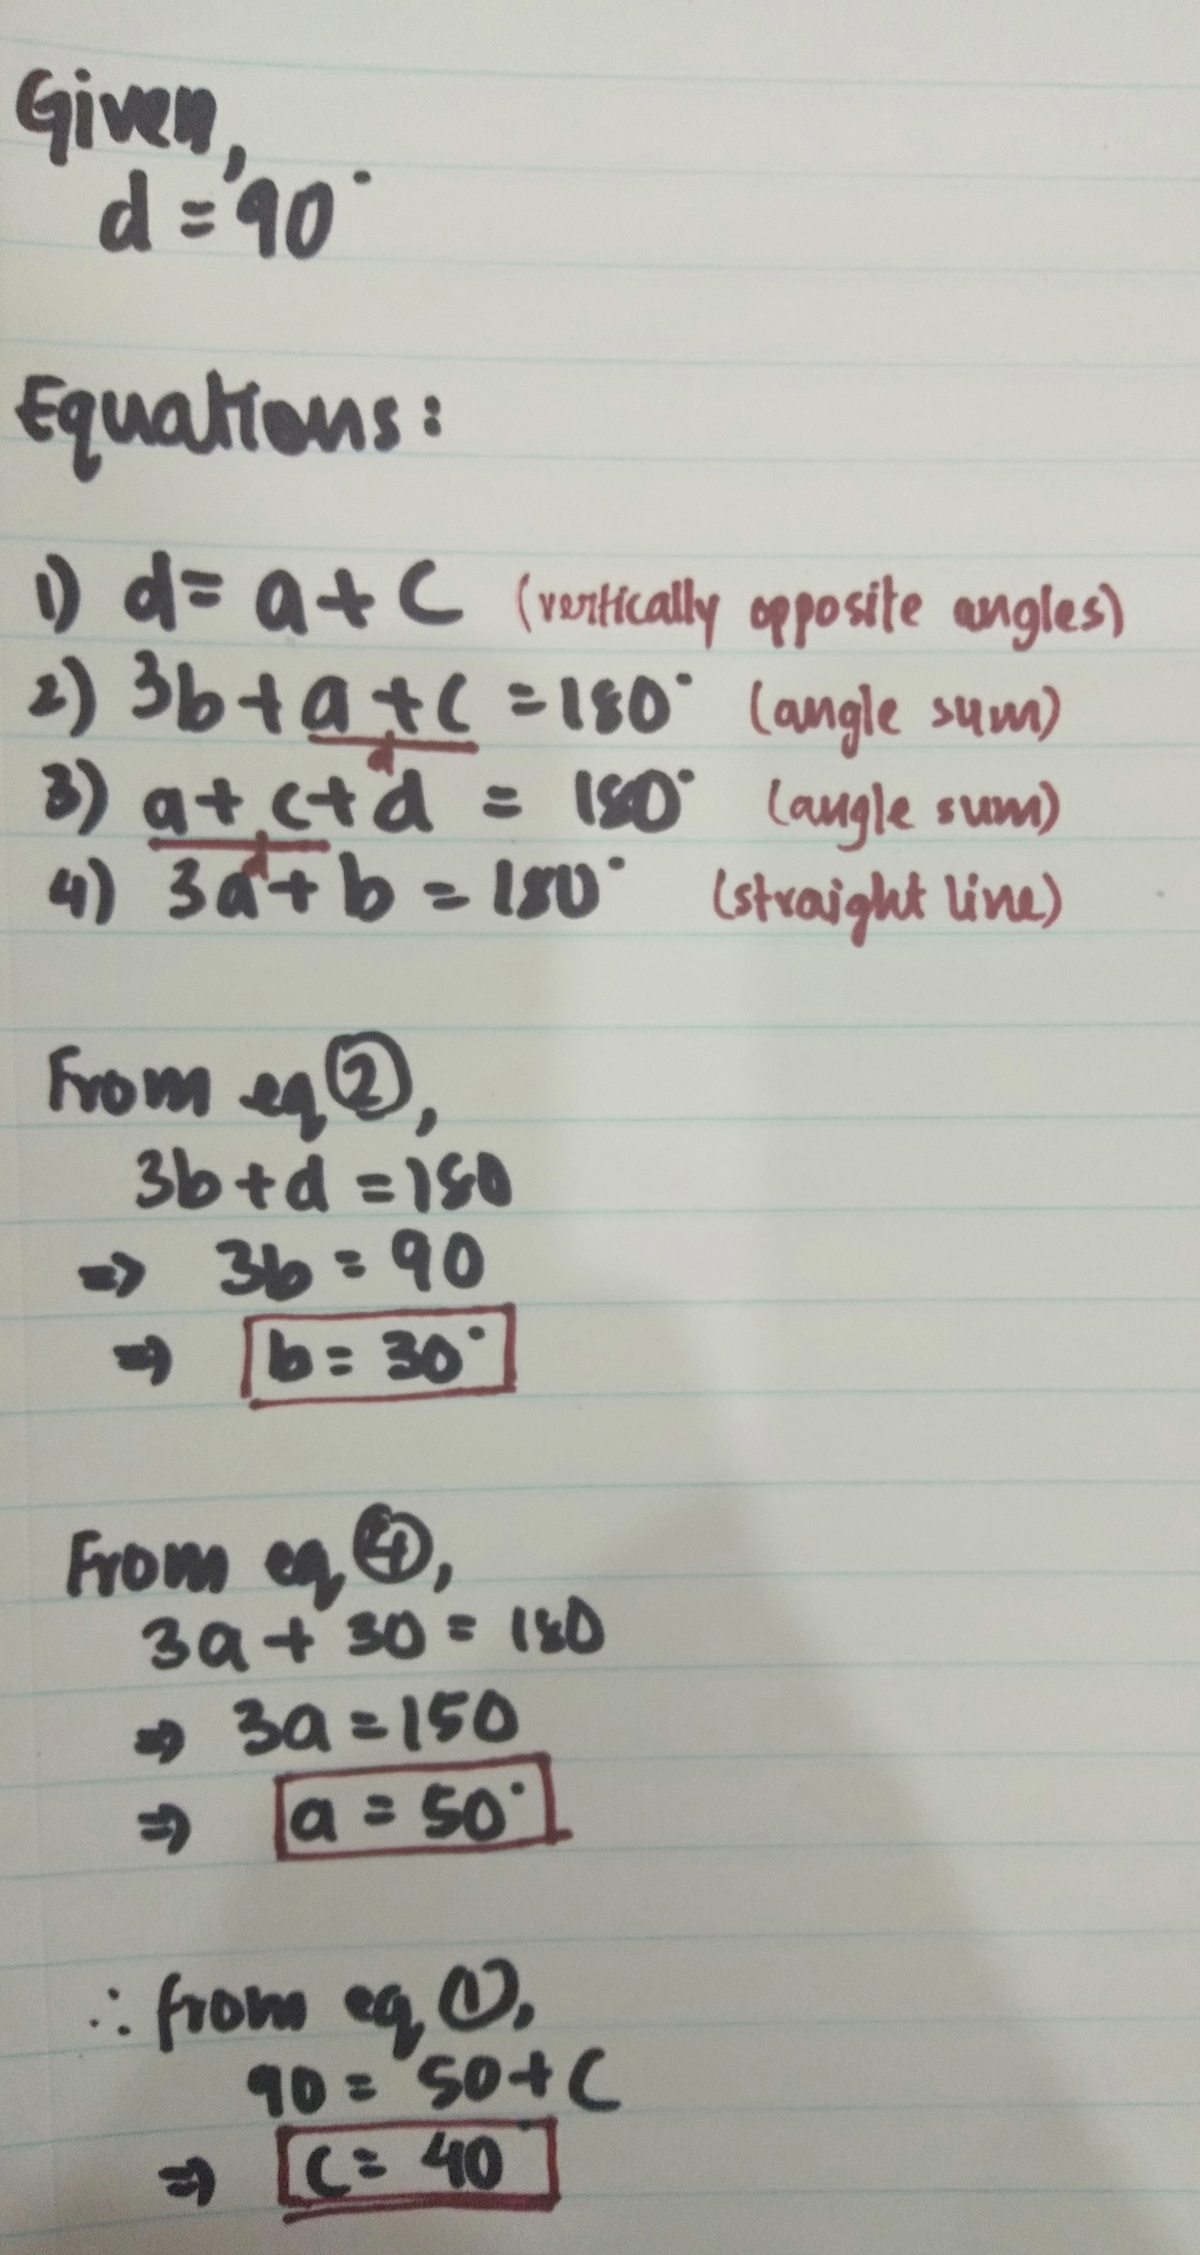 Given,
d = 90°
Equations:
1) d = a + c (vertically opposite angles)
2) 3b + a + c = 180° (angle sum)
d
3) a + c + d = 180° (angle sum)
d
4) 3a + b = 180° (straight line)
From eq ②,
3b + d = 180
⇒ 3b = 90
⇒ b = 30°
From eq ④,
3a + 30 = 180
⇒ 3a = 150
⇒ a = 50°
∴ from eq ①,
90 = 50 + c
⇒ c = 40